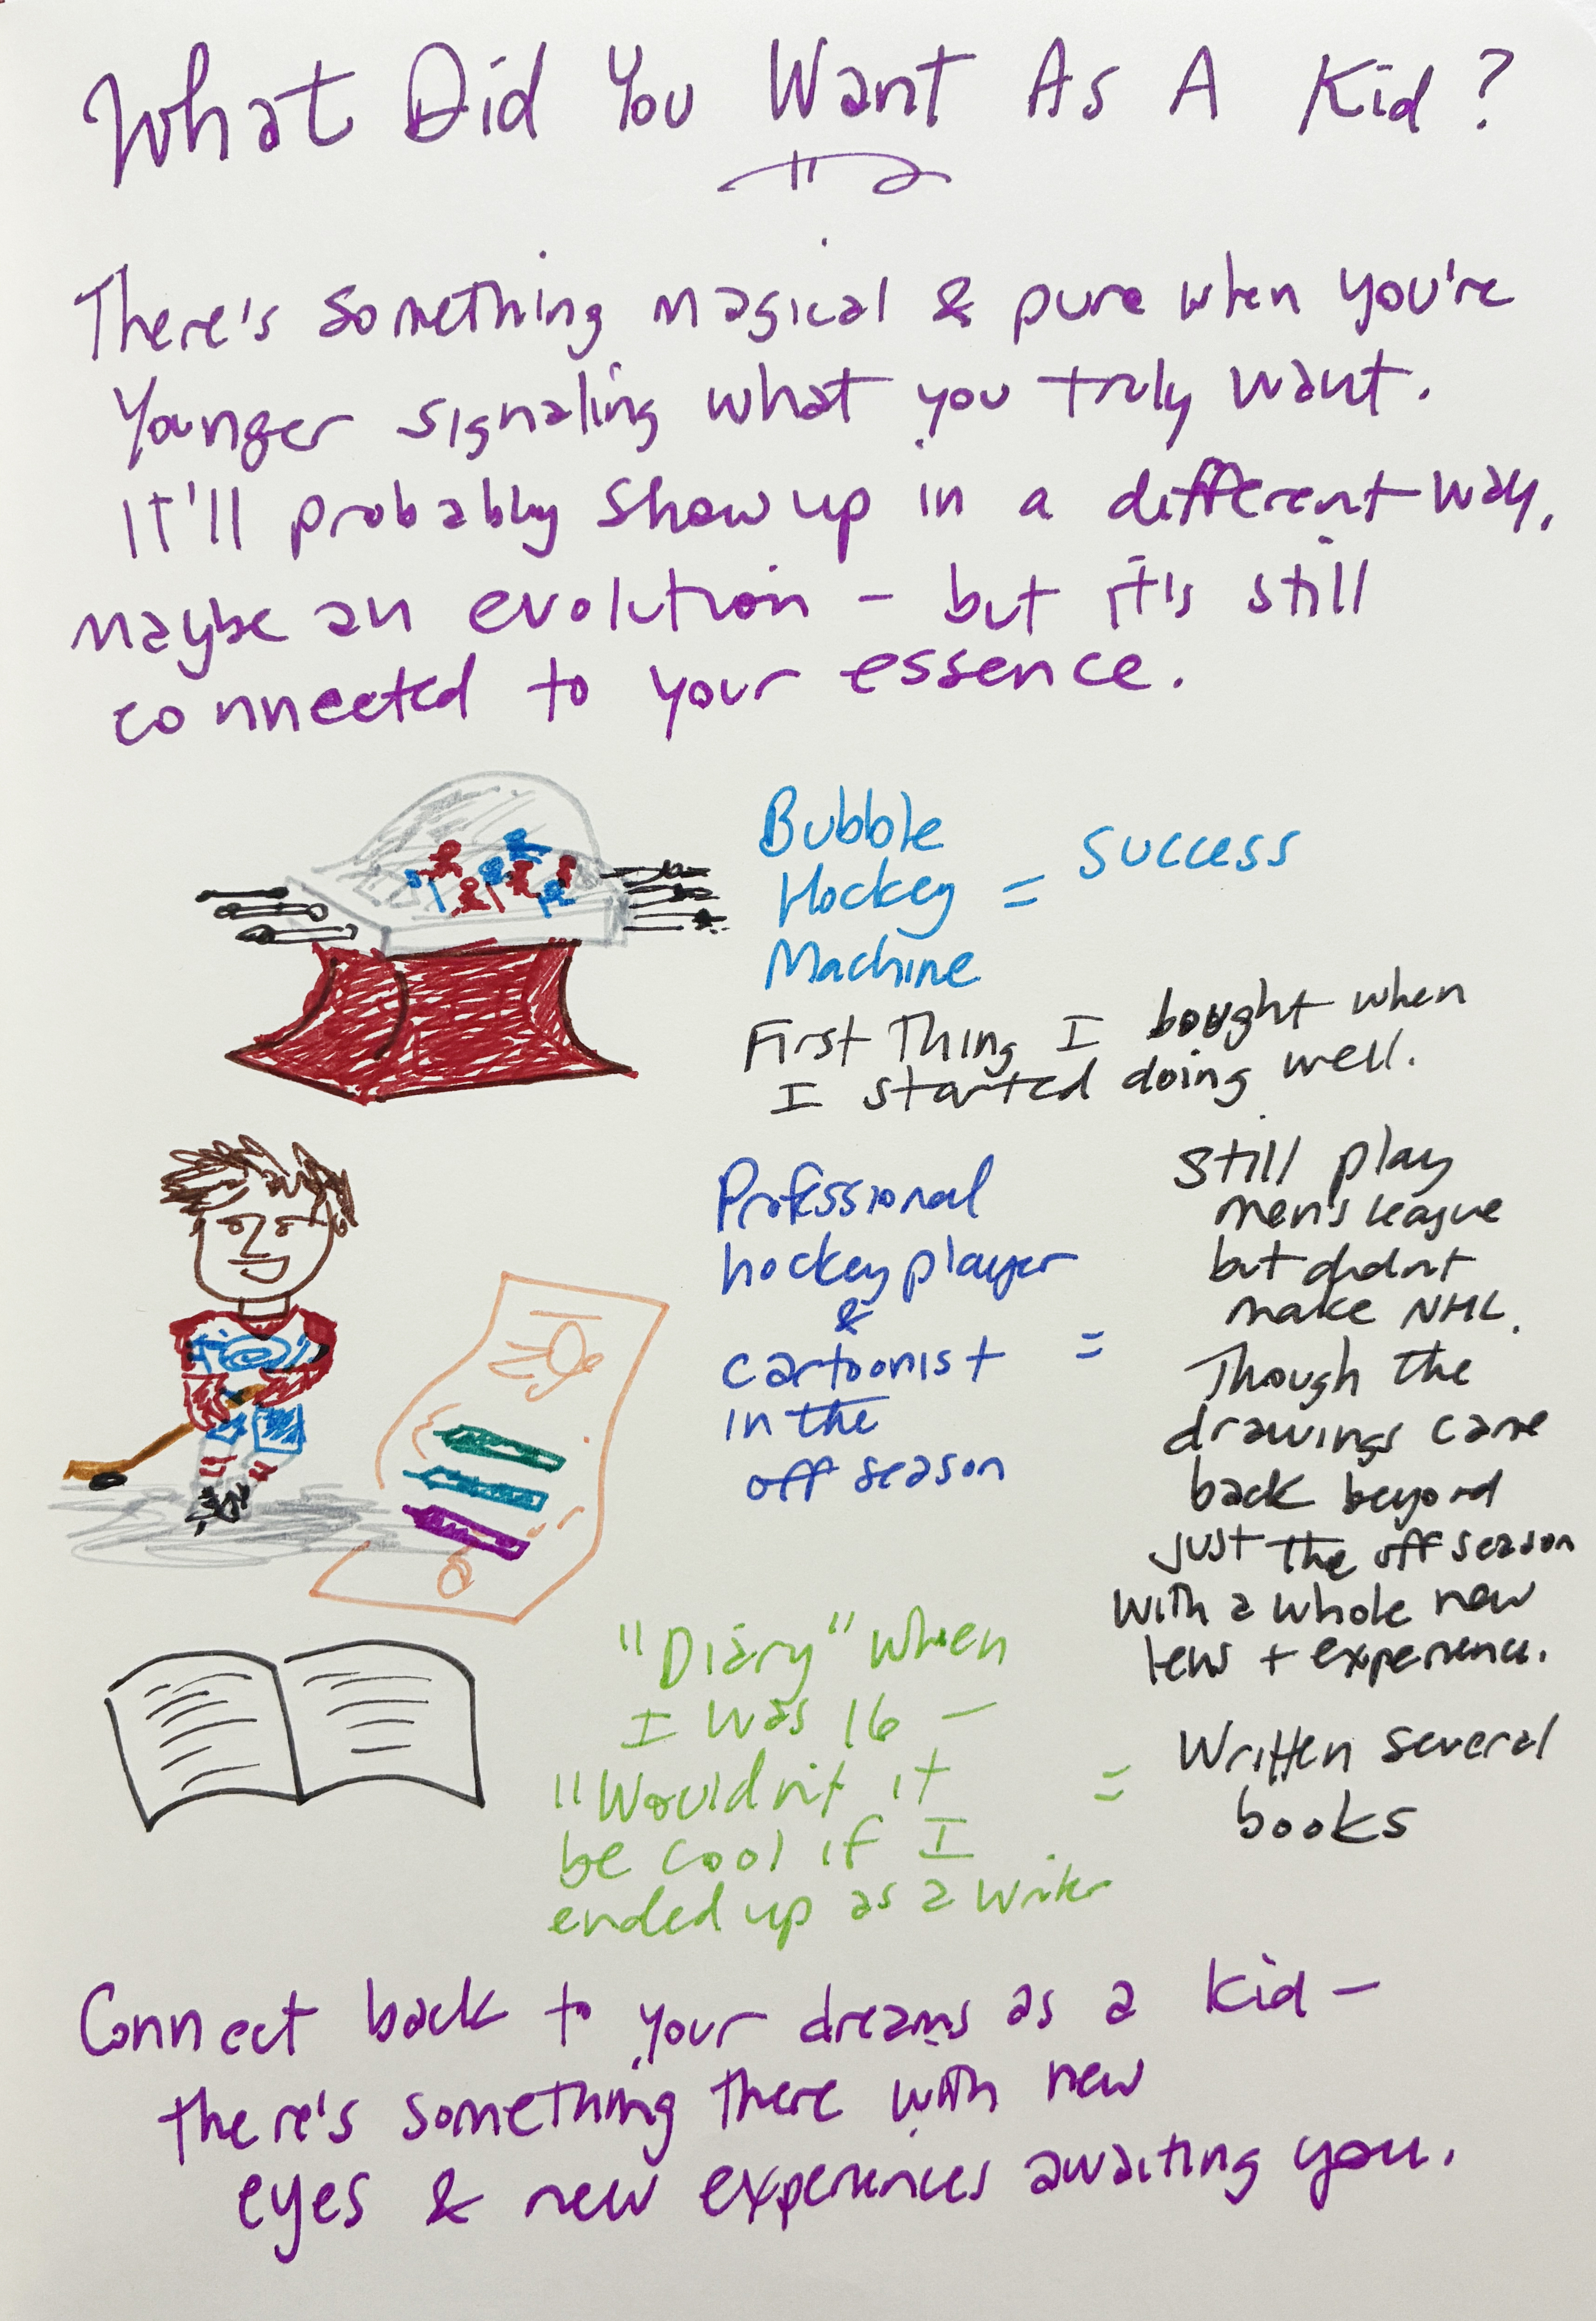 What Did You Want As A Kid?
There's something magical & pure when you're
Younger signaling what you truly want.
It'll probably show up in a different way,
maybe an evolution - but it's still
connected to your essence.
Bubble
Hockey = success
Machine
First Thing I bought when
I started doing well.
Professional
hockey player
&
cartoonist =
in the
off season
Still play
men's league
but didn't
make NHL.
Though the
drawings came
back beyond
just the off season
with a whole new
lens + experience.
"Diary" when
I was 16 -
"Wouldn't it =
be cool if I
ended up as a writer
Written several
books
Connect back to your dreams as a kid -
there's something there with new
eyes & new experiences awaiting you.